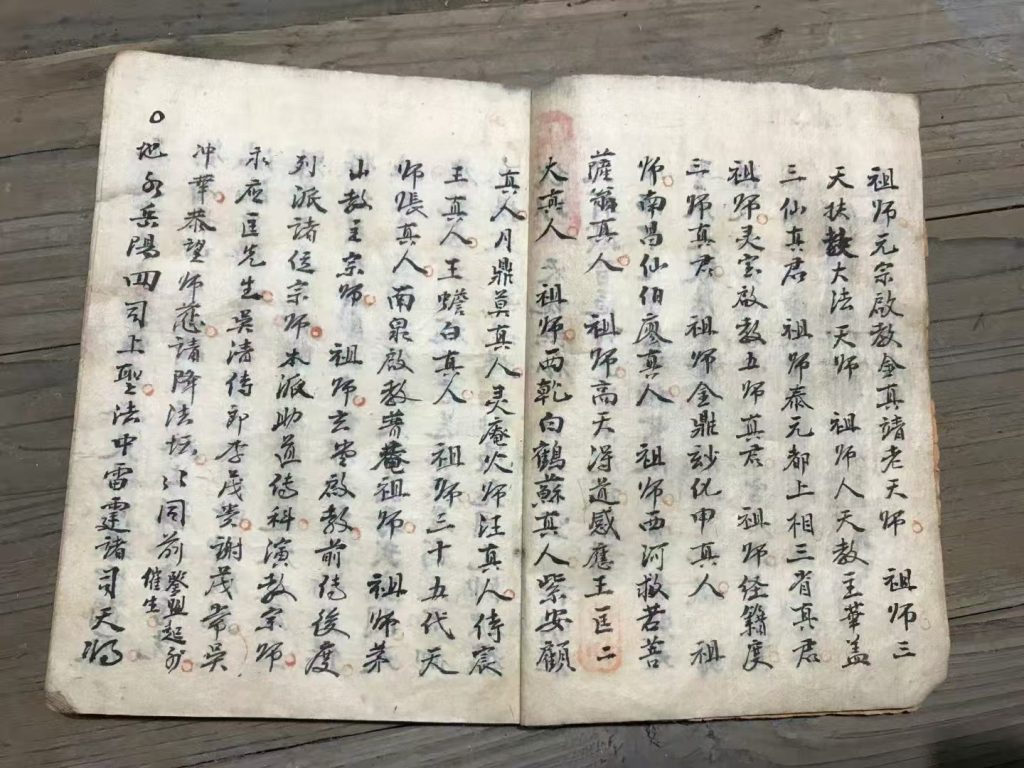 祖师元宗啟教全真諸老天师 祖师三
天扶教大法天师 祖师人天教主華盖
三仙真君 祖师泰元都上相三省真君
祖师灵宝啟教五师真君 祖师经籍度
三师真君 祖师金鼎玅化申真人 祖
师南昌仙伯廖真人 祖师西河救苦菩
薩翁真人 祖师高天得道感應王匡二
大真人 祖师西乾白鶴蘇真人紫安顧
真人月鼎莫真人灵庵火师汪真人侍宸
王真人王蟾白真人 祖师三十五代天
师張真人南泉啟教菴祖师 祖师茅
山教主宗师 祖师玄堂啟教前传後度
列派諸位宗师本派助道传科演教宗师
永應匡先生吳清传郎李茂堂謝茂常吳
冲華恭望师慈請降法坛以同前
發盥起
催生
地水岳陽四司上聖法中雷霆諸司天